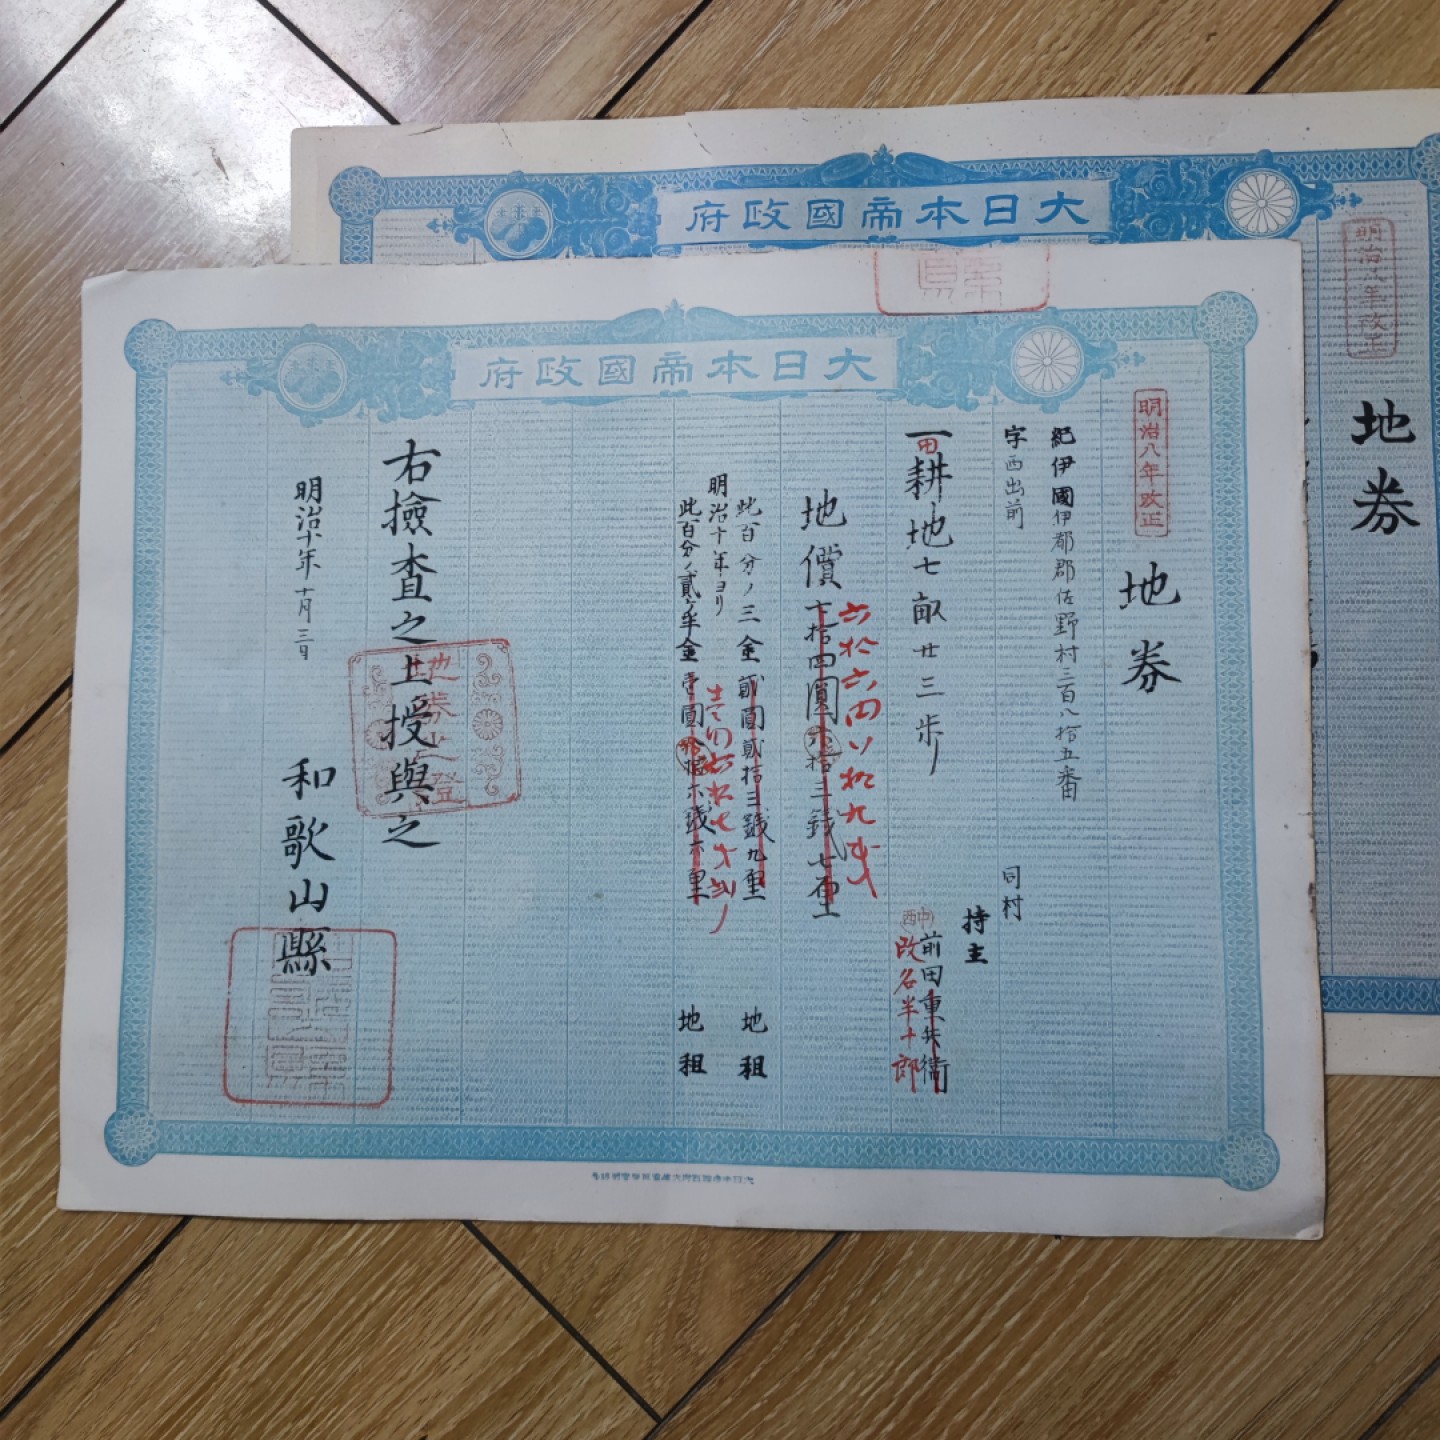 大日本帝國政府
明治八年改正
地券
大日本帝國政府
明治八年改正
地券
紀伊國伊都郡佐野村三百八拾五番
字西出前
同村
持主
前田重兵衞
改名半十郎
一耕地七畝廿三歩
田
地價七拾四圓六拾三錢七厘
此百分ノ三金貳圓貳拾三錢九厘
地租
明治十年ヨリ
此百分ノ貳ヶ半金壹圓八拾六錢六厘
地租
右檢査之上授與之
地券之證
明治十年十月三日
和歌山縣